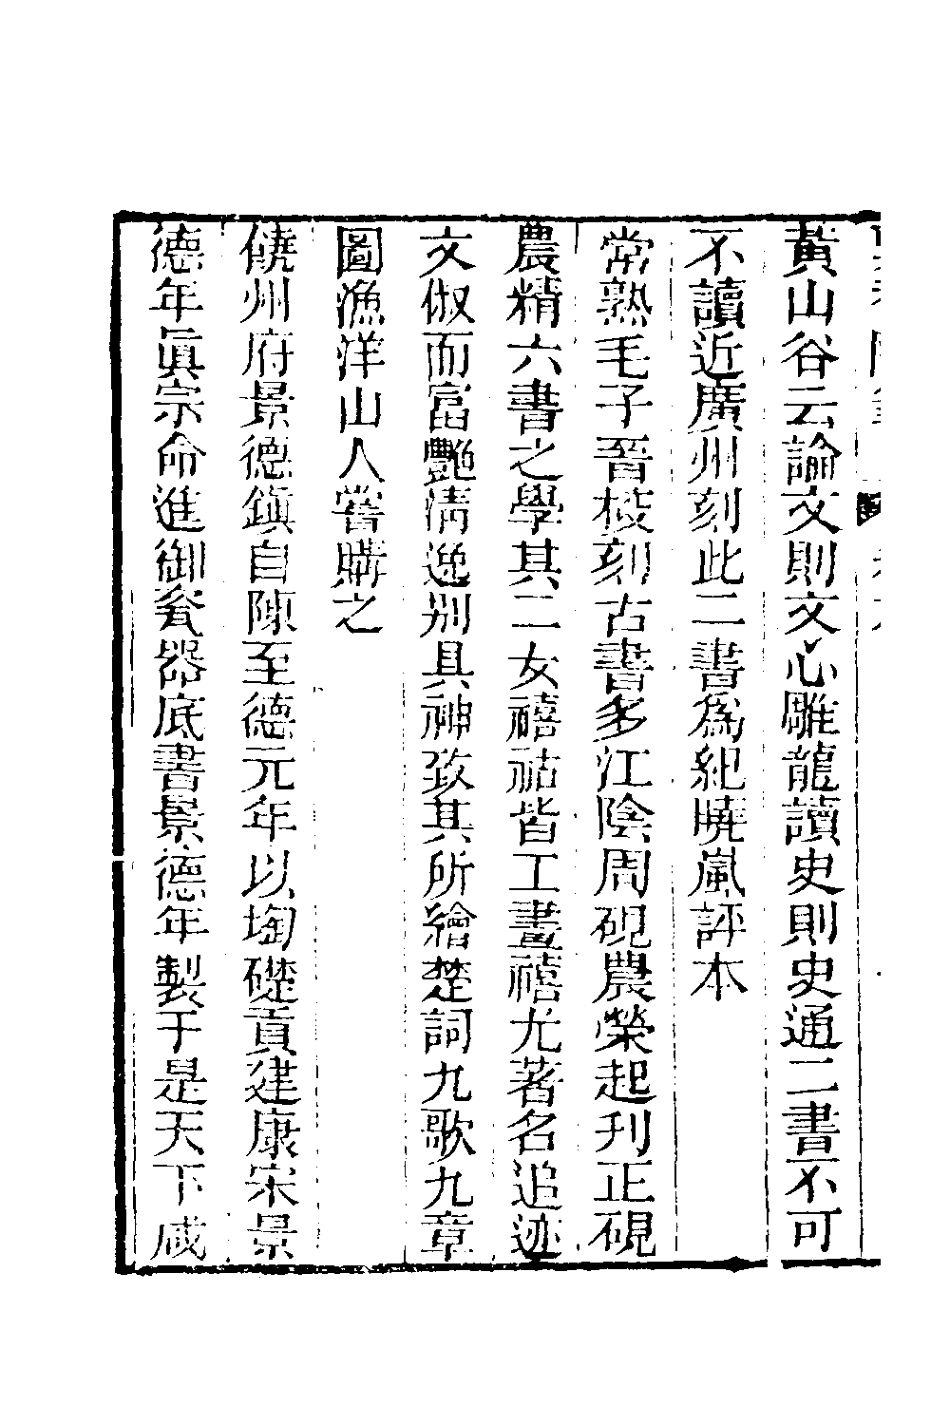 黃山谷云論文則文心雕龍讀史則史通二書不可
不讀近廣州刻此二書爲紀曉嵐評本
常熟毛子晉校刻古書多江陰周硯農榮起刊正硯
農精六書之學其二女禧祜皆工畫禧尤著名追迹
文俶而富艷清逸别具神致其所繪楚詞九歌九章
圖漁洋山人嘗購之
饒州府景德鎮自陳至德元年以埆礎貢建康宋景
德年眞宗命進御瓷器底書景德年製于是天下咸